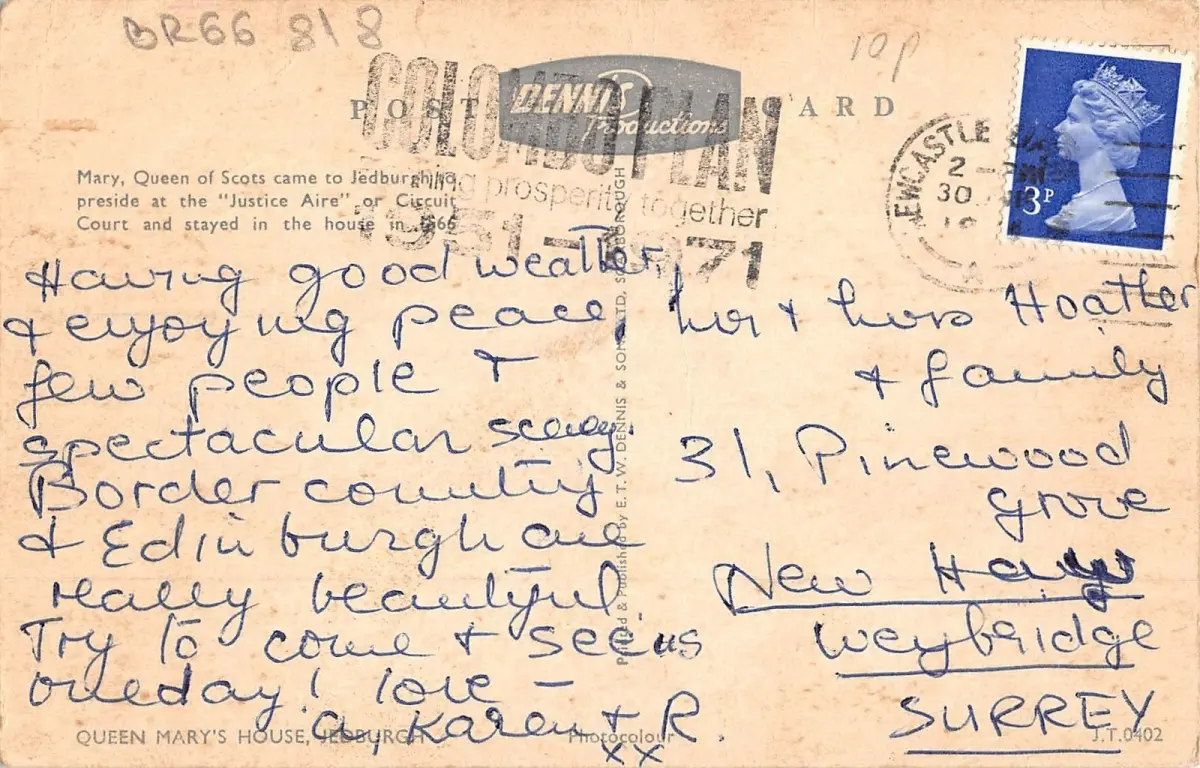 BR66 818
10p
POST CARD
DENNIS
Productions
COLOMBO PLAN
prosperity together
1951-1971
NEWCASTLE
2
30
3P
Mary, Queen of Scots came to Jedburgh to
preside at the "Justice Aire" or Circuit
Court and stayed in the house in 1566
Having good weather,
& enjoying peace,
few people &
spectacular scenery.
Border country
& Edinburgh are
really beautiful.
Try to come & see us
oneday! love –
A, Karen & R.
xx
Printed & Published by E. T. W. DENNIS & SONS LTD, SCARBOROUGH
Mr & Mrs Hoather
& family
31, Pinewood
Grove
New Haw
Weybridge
SURREY
QUEEN MARY'S HOUSE, JEDBURGH
Photocolour
J.T.0402